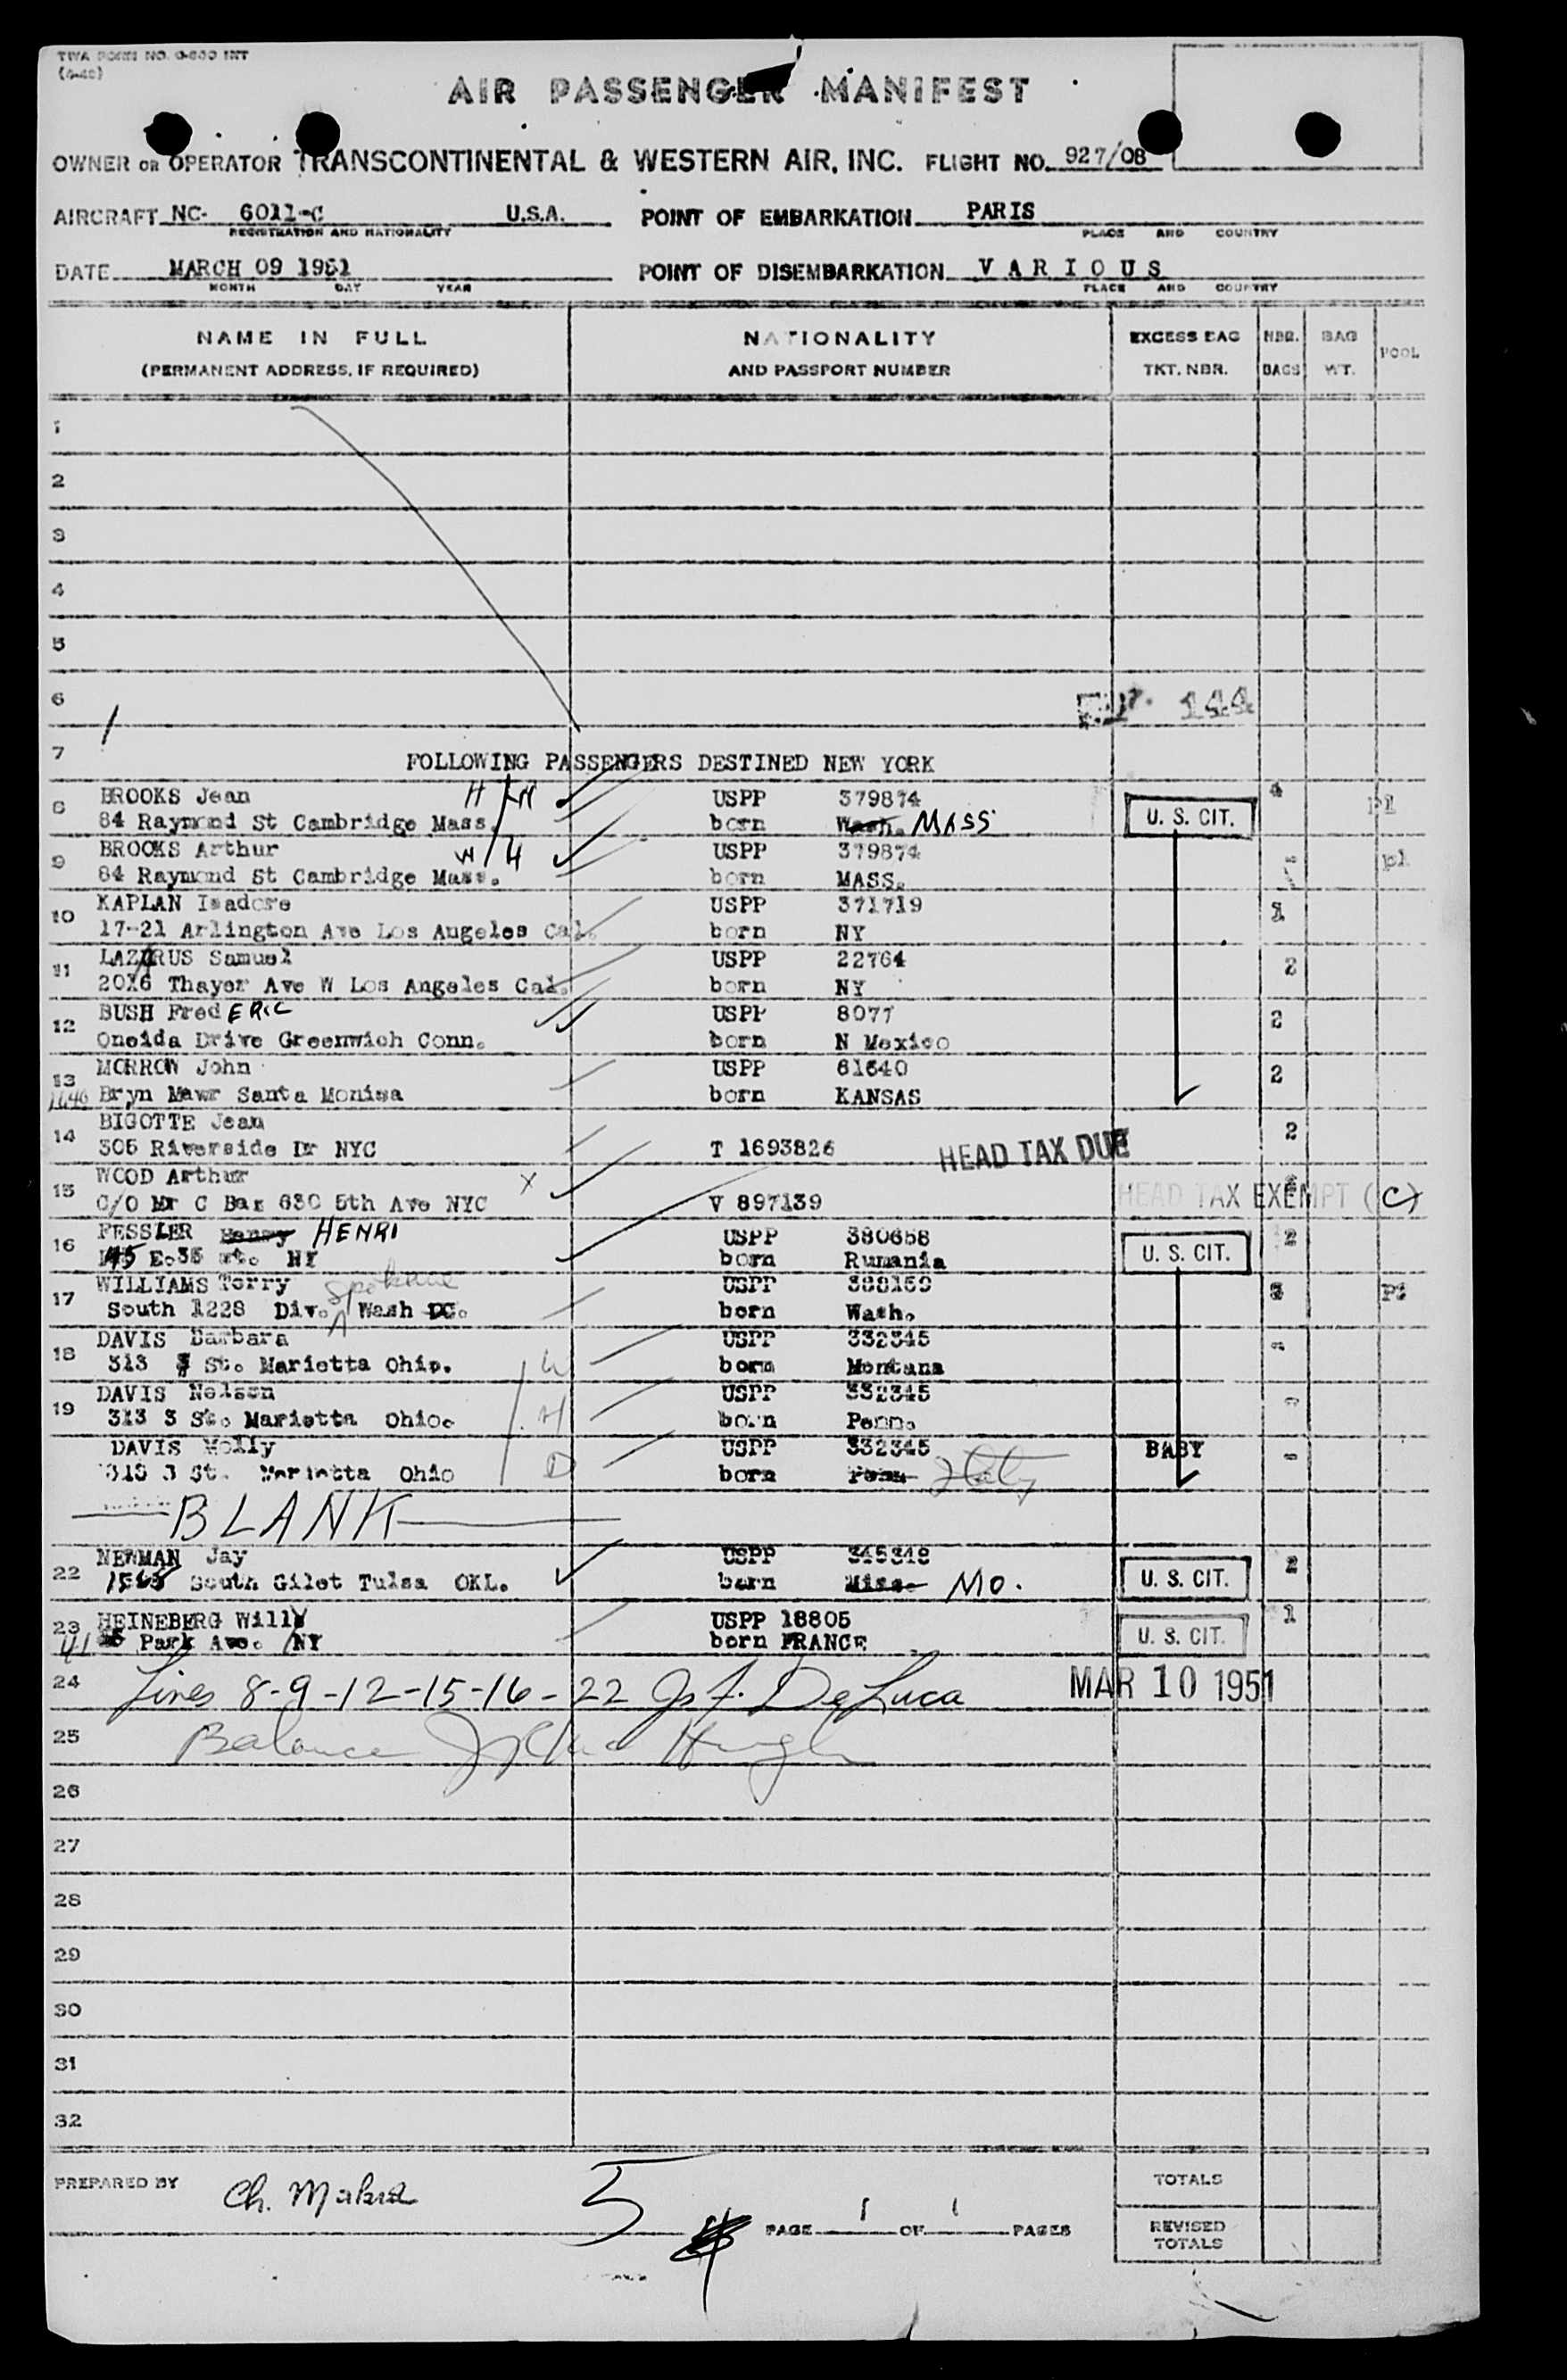 TWA FORM NO. O-800 INT
AIR PASSENGER MANIFEST
OWNER OR OPERATOR TRANSCONTINENTAL & WESTERN AIR, INC. FLIGHT NO. 927/08
AIRCRAFT NC- 6011-C U.S.A. POINT OF EMBARKATION PARIS
REGISTRATION AND NATIONALITY PLACE AND COUNTRY
DATE MARCH 09 1951 POINT OF DISEMBARKATION V A R I O U S
MONTH DAY YEAR PLACE AND COUNTRY
NAME IN FULL NATIONALITY EXCESS BAG NBR. BAG POOL
(PERMANENT ADDRESS, IF REQUIRED) AND PASSPORT NUMBER TKT. NBR. BAGS WT.
1
2
3
4
5
6 144
7 FOLLOWING PASSENGERS DESTINED NEW YORK
8 BROOKS Jean USPP 379874 4 pl
84 Raymond St Cambridge Mass. born Wash. MASS U. S. CIT.
9 BROOKS Arthur W/H USPP 379874 pl
84 Raymond St Cambridge Mass. born MASS.
10 KAPLAN Isadore USPP 371719 1
17-21 Arlington Ave Los Angeles Cal. born NY
11 LAZARUS Samuel USPP 22764 2
2016 Thayer Ave W Los Angeles Cal. born NY
12 BUSH Fred ERIC USPP 8077 2
Oneida Drive Greenwich Conn. born N Mexico
13 MORROW John USPP 61540 2
1640 Bryn Mawr Santa Monica born KANSAS
14 BIGOTTE Jean 2
305 Riverside Dr NYC T 1693826 HEAD TAX DUE
15 WOOD Arthur X
C/O Mr C Bar 630 5th Ave NYC V 897139 HEAD TAX EXEMPT (C)
16 FESSLER Henry HENRI USPP 380658 2
145 E.35 st. NY born Rumania U. S. CIT.
17 WILLIAMS Terry Spokane USPP 388159 3
South 1228 Div. Wash DC. born Wash.
18 DAVIS Barbara USPP 332345
313 3 St. Marietta Ohio. W born Montana
19 DAVIS Nelson USPP 332345
313 3 St. Marietta Ohio. H born Penn.
DAVIS Molly USPP 332345 BABY
313 3 St. Marietta Ohio D born Penn Italy
BLANK
22 NEWMAN Jay USPP 345348 2
1565 South Gilet Tulsa OKL. born Miss. MO. U. S. CIT.
23 HEINEBERG Willy USPP 18805 1
Park Ave. NY born FRANCE U. S. CIT.
24 Lines 8-9-12-15-16-22 Js. F. DeLuca MAR 10 1951
25 Balance
26
27
28
29
30
31
32
PREPARED BY Ch. 5 PAGE 1 OF 1 PAGES
TOTALS
REVISED
TOTALS